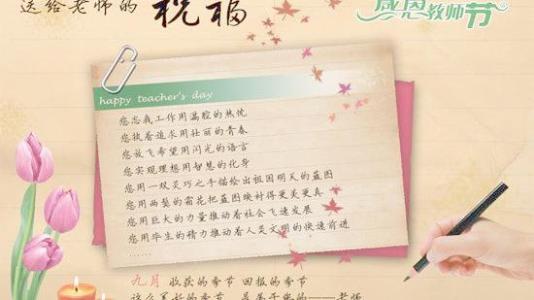 送给老师的 祝福
感恩教师节
happy teacher's day
您忘我工作用满腔的热忱
您执着追求用壮丽的青春
您放飞希望用闪光的语言
您实现理想用智慧的化身
您用一双灵巧之手描绘出祖国明天的蓝图
您用两鬓的霜花把蓝图映衬得更美更真
您用巨大的力量推动着社会飞速发展
您用毕生的精力推动着人类文明的快速前进
九月 收获的季节 回报的季节
这么美好的季节，是属于您的——老师